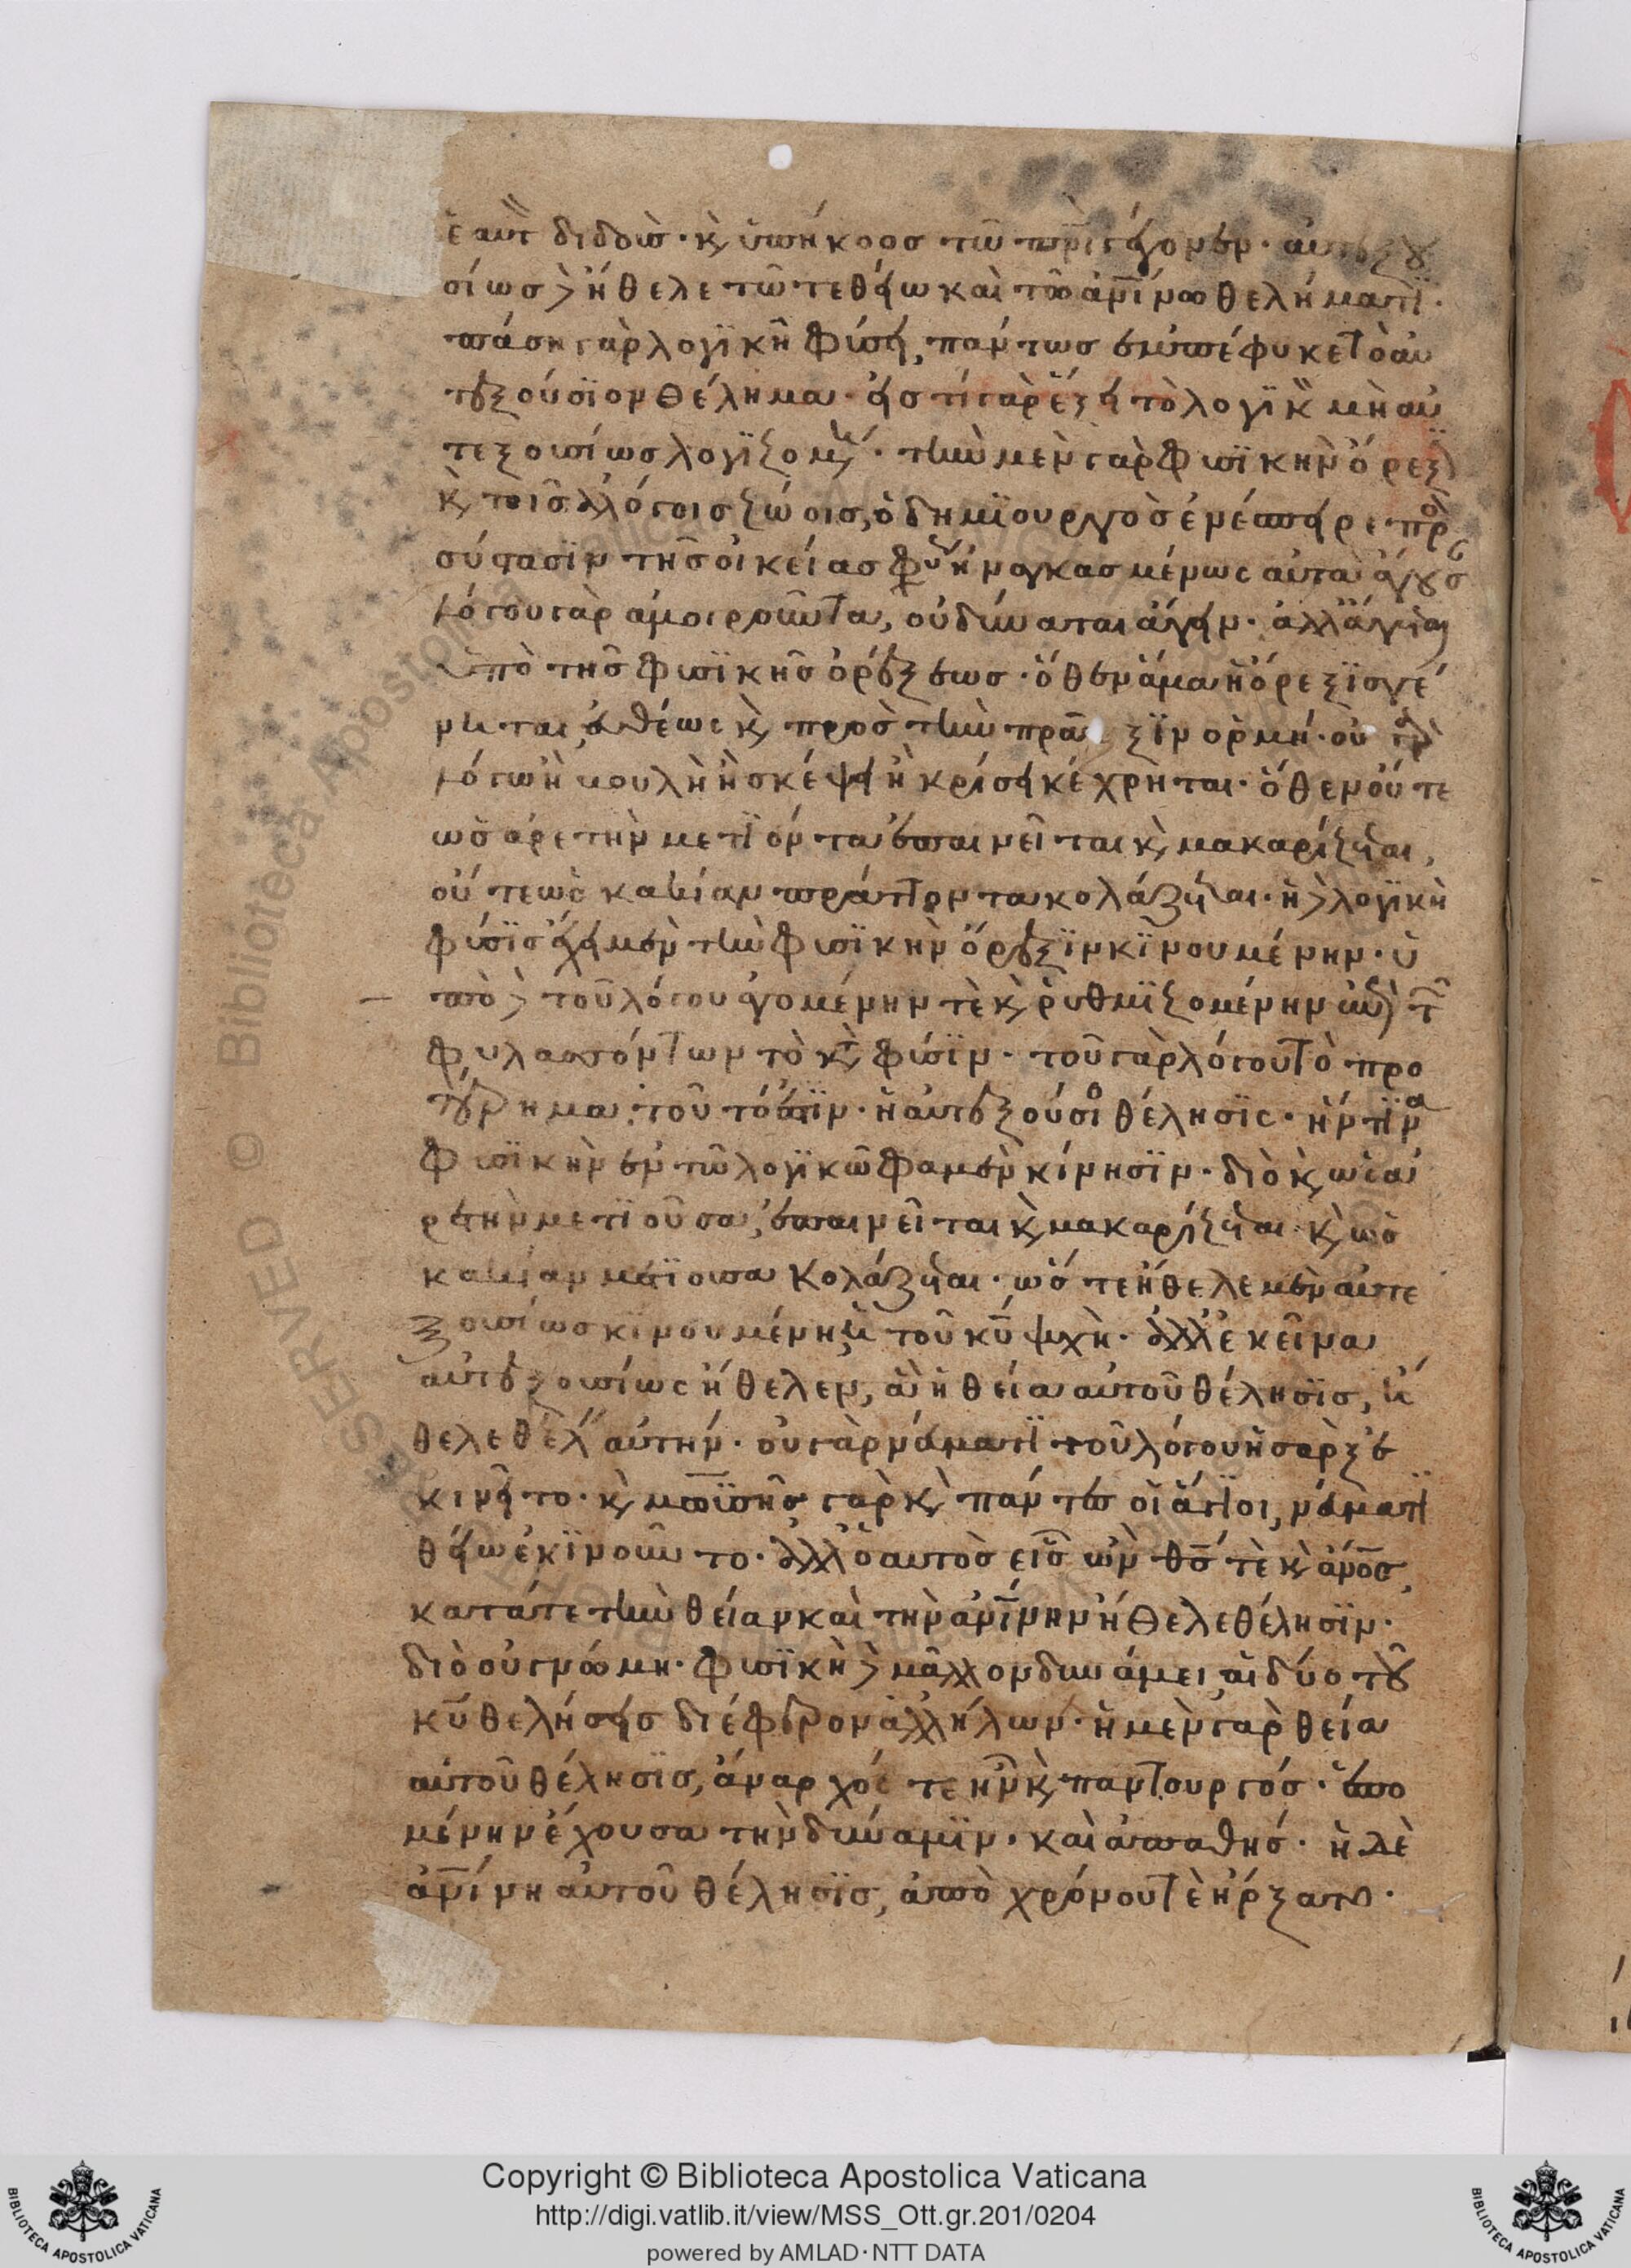 ἑαυτ διδοὺσ· κ ὑπήκοοσ τῶ πρι γέγομεν· αὐτεξου
σίωσ δὲ ἤθελε τῶ τε θείω καὶ τῶ ἀνίνω θελήματϊ·
πάση γὰρ λογϊκῆ φύσει, πάντωσ ἐμπέφυκε τὸ αὐ
τεξούσϊον θέλημα· εἰσ τί γὰρ ἕξει τὸ λογϊκ μὴ αὐ
τεξουσίωσ λογϊζομ· τὴν μὲν γὰρ φυσϊκὴν ὄρεξ
κ τοῖσ ἀλόγοισ ζώοισ, ὁ δημϊουργὸσ ἐνέσπειρε· πρ
σύστασϊν τῆσ οἰκείασ φυ ἠναγκασμένωσ αὐτὰ ἄγουσ
λόγου γὰρ ἀμοιροῦντα, οὐ δύναται ἄγειν· ἀλλ' ἄγεται
ὑπὸ τῆσ φυσϊκῆσ ὀρέξεωσ· ὅθεν ἅμα ἡ ὄρεξϊσ γέ
νηται, εὐθέωσ κ πρὸσ τὴν πρᾶ ξϊν ὁρμή· οὐ γὰρ
λόγω ἢ βουλῆ ἢ σκέψει ἢ κρίσει κέχρηται· ὅθεν οὔτε
ὡσ ἀρετὴν μετϊόντα ἐπαινεῖται κ μακαρίζεται,
οὔτε ὡσ κακίαν πράττοντα κολάζεται· ἡ δὲ λογϊκὴ
φύσϊσ ἔχει μὲν τὴν φυσϊκὴν ὄρεξϊν κϊνουμένην· ὑ
πὸ δὲ τοῦ λόγου ἀγομένην τὲ κ ῥυθμϊζομένην ἐπὶ τ
φυλαττόντων τὸ κτ φύσϊν· τοῦ γὰρ λόγου τὸ προ
τέρημα τοῦτό ἐστϊν· ἡ αὐτεξούσϊο θέλησϊσ· ἥντϊνα
φυσϊκὴν ἐν τῶ λογϊκῶ φαμὲν κίνησϊν· διὸ κ ὡσ ἀ
ρετὴν μετϊοῦσα, ἐπαινεῖται κ μακαρίζεται· κ ὡσ
κακίαν μετϊοῦσα κολάζεται· ὥστε ἤθελε μὲν αὐτε
ξουσίωσ κϊνουμένη ἡ τοῦ κυ ψχὴ· ἀλλ' ἐκεῖνα
αὐτεξουσίωσ ἤθελεν, ἃ ἡ θεία αὐτοῦ θέλησϊσ, ἤ
θελε θέλ αὐτήν· οὐ γὰρ νεύματϊ τοῦ λόγου ἡ σὰρξ ἐ
κινεῖτο· κ μωϊσῆσ γὰρ κ πάντεσ οἱ ἅγϊοι, νεύματϊ
θείω ἐκϊνοῦντο· ἀλλ' ὁ αὐτὸσ εἷσ ὢν θσ τὲ κ ἀνοσ,
κατά τε τὴν θείαν καὶ τὴν ἀνίνην ἤθελε θέλησϊν·
διὸ οὐ γνώμη· φυσϊκῆ δὲ μᾶλλον δυνάμει, αἱ δύο τοῦ
κυ θελήσεισ διέφερον ἀλλήλων· ἡ μὲν γὰρ θεία
αὐτοῦ θέλησϊσ, ἄναρχόσ τε ἦν κ παντουργόσ· ἑπο
μένην ἔχουσα τὴν δύναμϊν· καὶ ἀπαθήσ· ἡ δὲ
ἀνίνη αὐτοῦ θέλησϊσ, ἀπὸ χρόνου τὲ ἤρξατο·
Copyright © Biblioteca Apostolica Vaticana
http://digi.vatlib.it/view/MSS_Ott.gr.201/0204
powered by AMLAD·NTT DATA